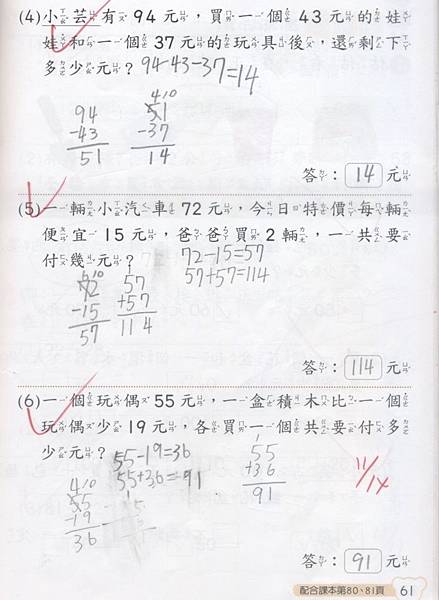 (4)小芸有 94 元,買一個 43 元的娃
娃和一個 37 元的玩具後,還剩下
多少元?
94-43-37=14
94
-43
51
4 10
51
-37
14
答:14 元
(5)一輛小汽車 72 元,今日特價每輛
便宜 15 元,爸爸買 2 輛,一共要
付幾元?
72-15=57
57+57=114
10
72
-15
57
57
+57
114
答:114 元
(6)一個玩偶 55 元,一盒積木比一個
玩偶少 19 元,各買一個共要付多
少元?
55-19=36
55+36=91
4 10
55
-19
36
1
55
+36
91
11/14
答:91 元
配合課本第80、81頁
61